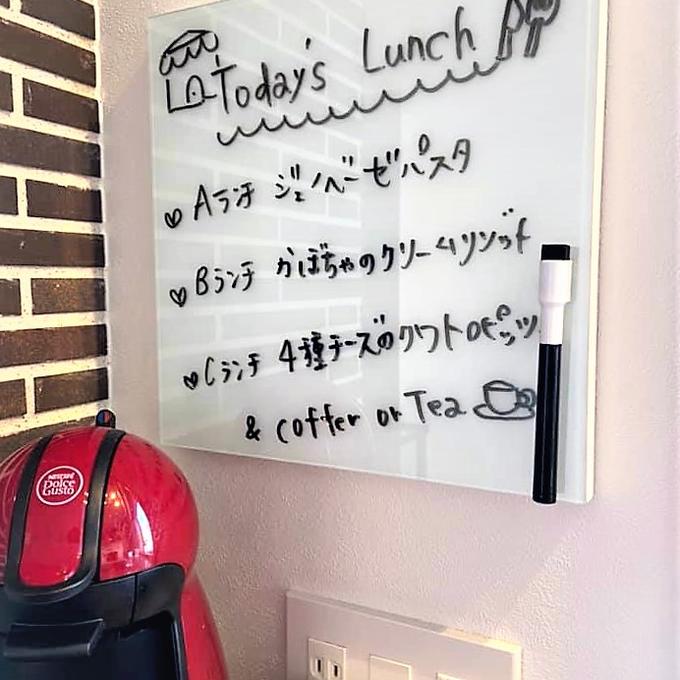 Today's Lunch
Aランチ ジェノベーゼパスタ
Bランチ かぼちゃのクリームリゾット
Cランチ 4種チーズのクワトロピッツ
& coffer or Tea
NESCAFÉ
Dolce
Gusto